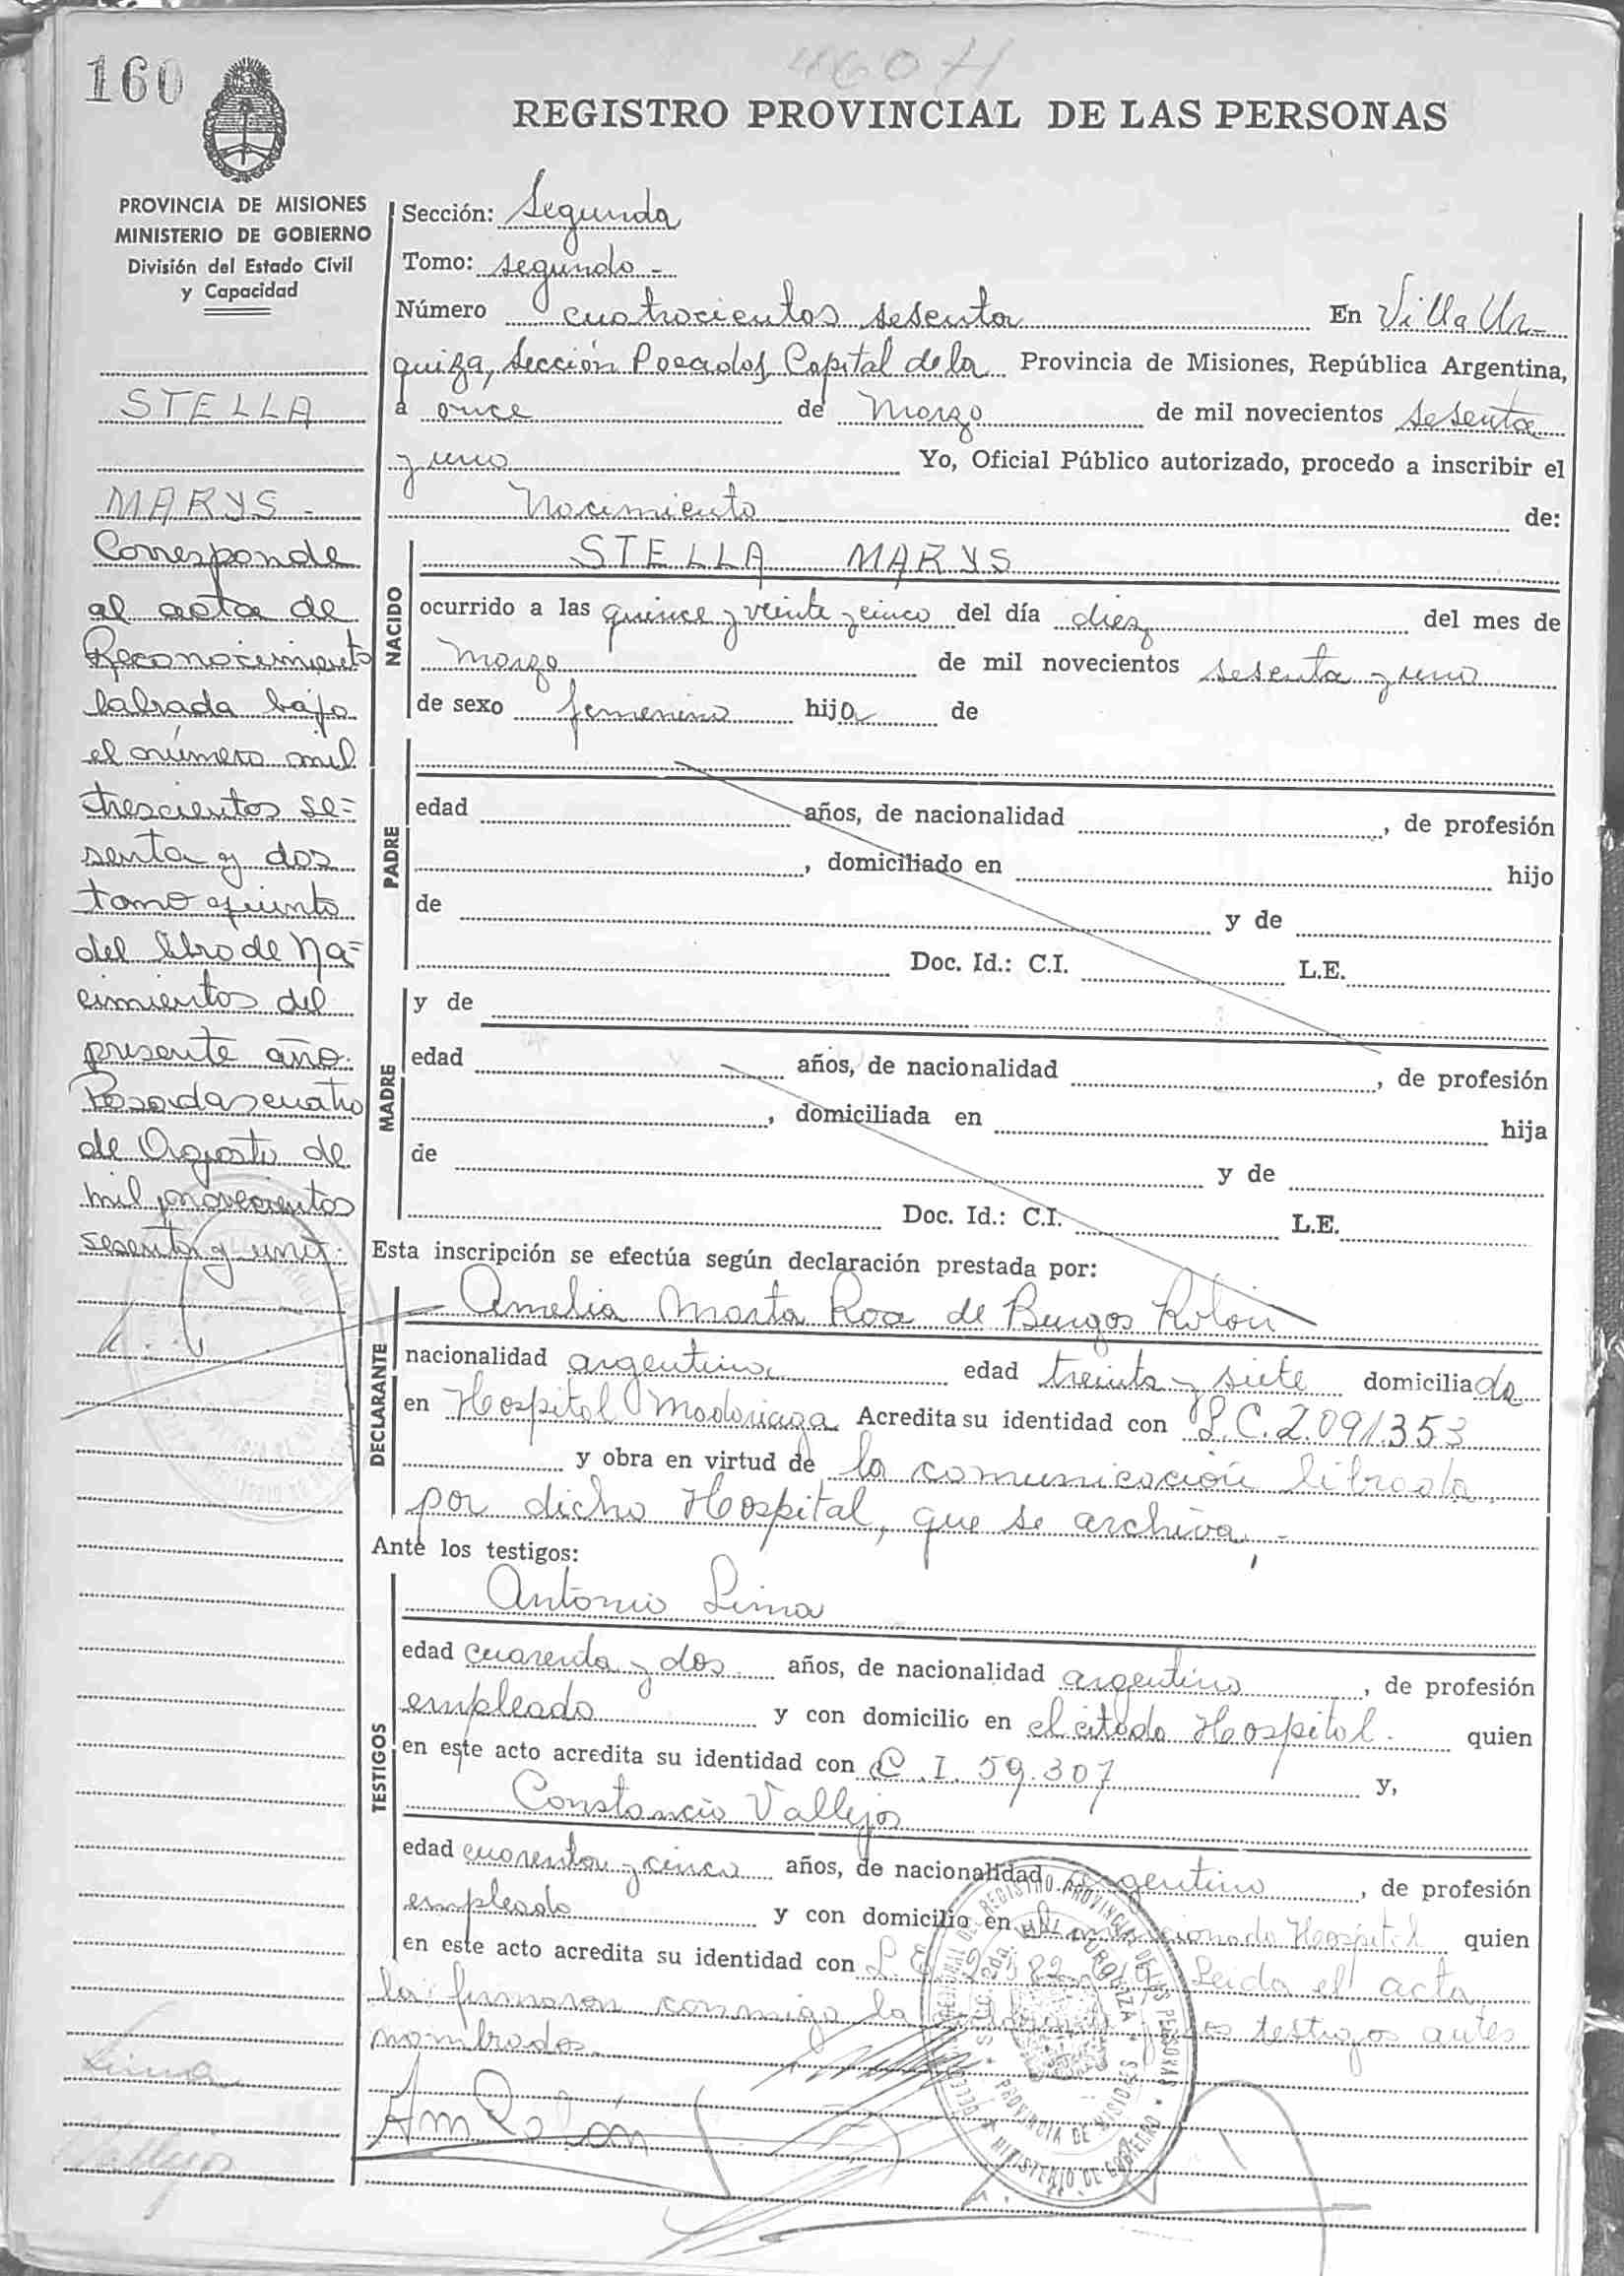 160
460 H
REGISTRO PROVINCIAL DE LAS PERSONAS
PROVINCIA DE MISIONES
MINISTERIO DE GOBIERNO
División del Estado Civil
y Capacidad
STELLA
MARYS -
Corresponde
al acta de
Reconocimiento
labrada bajo
el número mil
trescientos se=
senta y dos
tomo quinto
del libro de Na=
cimientos del
presente año.
Posadas cuatro
de Agosto de
mil novecientos
sesenta y uno.
Sección: Segunda
Tomo: segundo -
Número cuatrocientos sesenta En Villa Ur-
quiza, Sección Posadas, Capital de la Provincia de Misiones, República Argentina,
a once de Marzo de mil novecientos sesenta
y uno Yo, Oficial Público autorizado, procedo a inscribir el
Nacimiento de:
NACIDO
STELLA MARYS
ocurrido a las quince y veinte y cinco del día diez del mes de
Marzo de mil novecientos sesenta y uno
de sexo femenino hija de
PADRE
edad años, de nacionalidad , de profesión
, domiciliado en hijo
de y de
Doc. Id.: C.I. L.E.
MADRE
y de
edad años, de nacionalidad , de profesión
, domiciliada en hija
de y de
Doc. Id.: C.I. L.E.
Esta inscripción se efectúa según declaración prestada por:
DECLARANTE
Amelia Marta Roa de Burgos Rolón
nacionalidad argentina edad treinta y siete domiciliada
en Hospital Madariaga Acredita su identidad con L.C. 2.091.353
y obra en virtud de la comunicación librada
por dicho Hospital, que se archiva, -
Ante los testigos:
TESTIGOS
Antonio Lima
edad cuarenta y dos años, de nacionalidad argentino , de profesión
empleado y con domicilio en el citado Hospital. quien
en este acto acredita su identidad con C.I. 59.307 y,
Constancio Vallejos
edad cuarenta y cinco años, de nacionalidad argentino , de profesión
empleado y con domicilio en Hospital quien
en este acto acredita su identidad con L.E. Leida el acta,
la firmaron conmigo la testigos antes
nombrados.
Lima
Vallejo
Am Rolón
REGISTRO PROVINCIAL DE LAS PERSONAS
VILLA URQUIZA
PROVINCIA DE MISIONES
MINISTERIO DE GOBIERNO